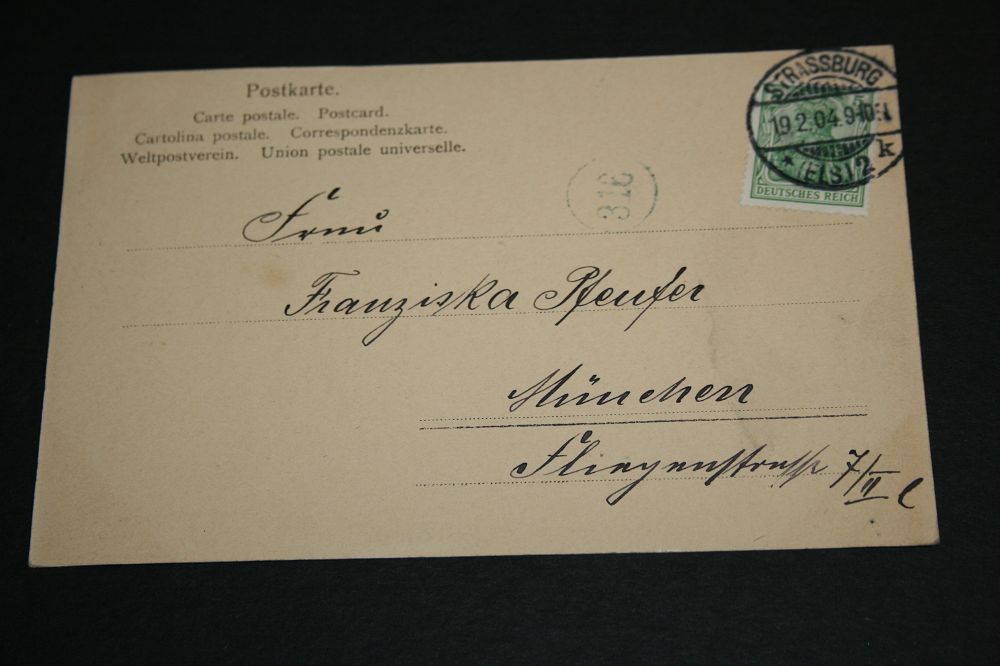 Postkarte.
Carte postale. Postcard.
Cartolina postale. Correspondenzkarte.
Weltpostverein. Union postale universelle.
STRASSBURG
19.2.04.9-10
(ELS.) 2
k
DEUTSCHES REICH
316
Frau
Franziska Pfeufer
München
Fliegenstrasse 7/II l